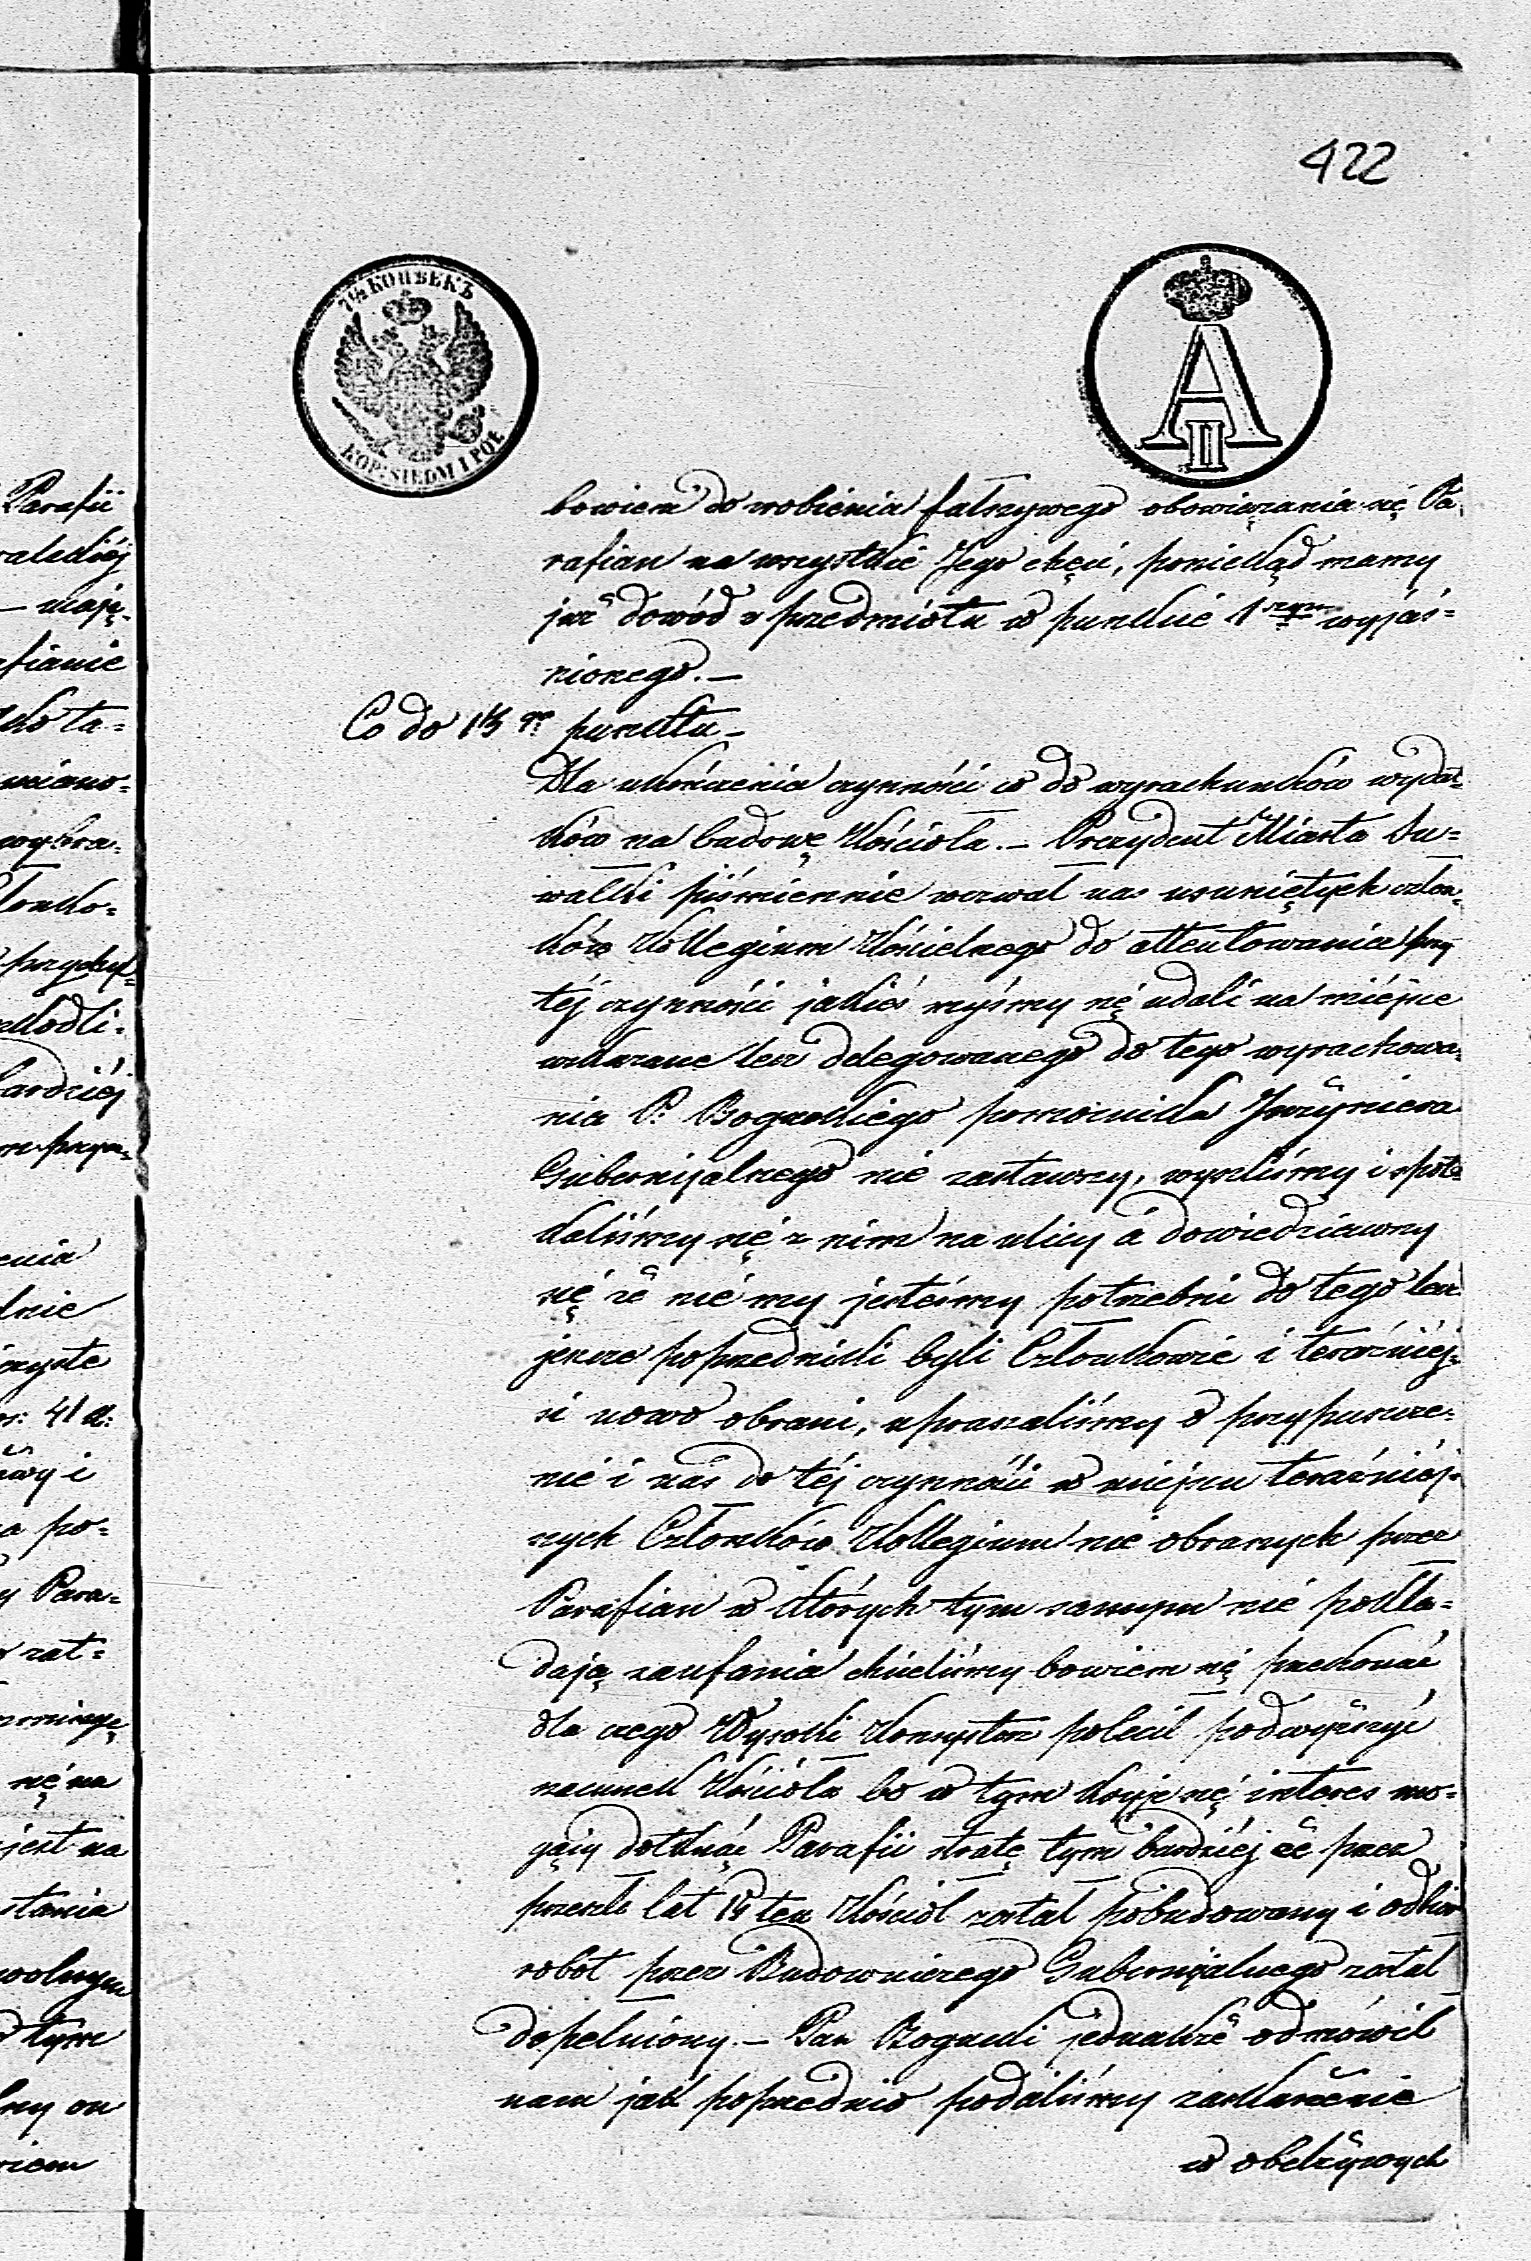 422
7½ КОПѢЕКЪ
KOP: SIEDM I PÓŁ
A II
bowiem do zrobienia fałszywego obowiązania się Pa-
rafian na wszystkie Jego chęci, poniekąd mamy
już dowód z przedmiotu w punkcie 1szym wyjaś-
nionego. —
Co do 13go punktu —
Dla ukończenia czynności co do wyrachunków wydat-
ków na budowę Kościoła. — Prezydent Miasta Su-
wałki piśmiennie wezwał nas usuniętych człon-
ków Kollegium Kościelnego do attentowania przy
téj czynności jakież myśmy się udali na miéjsce
wskazane lecz delegowanego do tego wyrachowa-
nia P. Boguckiego pomocnika Jnżyniera
Gubernijalnego nie zastawszy, wyszliśmy i spot-
kaliśmy się z nim na ulicy a dowiedziawszy
się że nie my jesteśmy potrzebni do tego lecz
jeszcze poprzedniki byli Członkowie i teraźniéj-
si nowo obrani, upraszaliśmy o przypuszcze-
nie i nas do téj czynności w miejscu teraźniéj-
szych Członków Kollegium nie obranych przez
Parafian w których tym samym nie pokła-
dają zaufania chcieliśmy bowiem się przekonać
dla czego Wysoki Konsystorz polecił podwyższyć
szacunek Kościoła bo w tym kryje się interes mo-
gący dotknąć Parafii stratę tym bardziéj że przez
przeszło lat 14 ten Kościół został pobudowany i odbiór
robót przez Budowniczego Gubernijalnego został
dopełniony. — Pan Bogucki jednakże odmówił
nam jak poprzednio podaliśmy zaskarżenie
w obelżywych
Parafii
mają-
afianie
ta-
bardziéj
enia
41
i
po-
Para-
się na
jest na
stania
tym
on